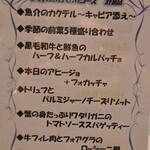 ◆魚介のカクテル～キャビア添え～
◆季節の前菜5種盛り合わせ
◆黒毛和牛と鮮魚の
ハーフ&ハーフカルパッチョ
◆本日のアヒージョ
+フォカッチャ
◆トリュフと
パルミジャーノチーズリゾット
◆蟹の身たっぷりワタリガニの
トマトソーススパゲッティー
◆牛フィレ肉とフォアグラの
ロッシーニ風